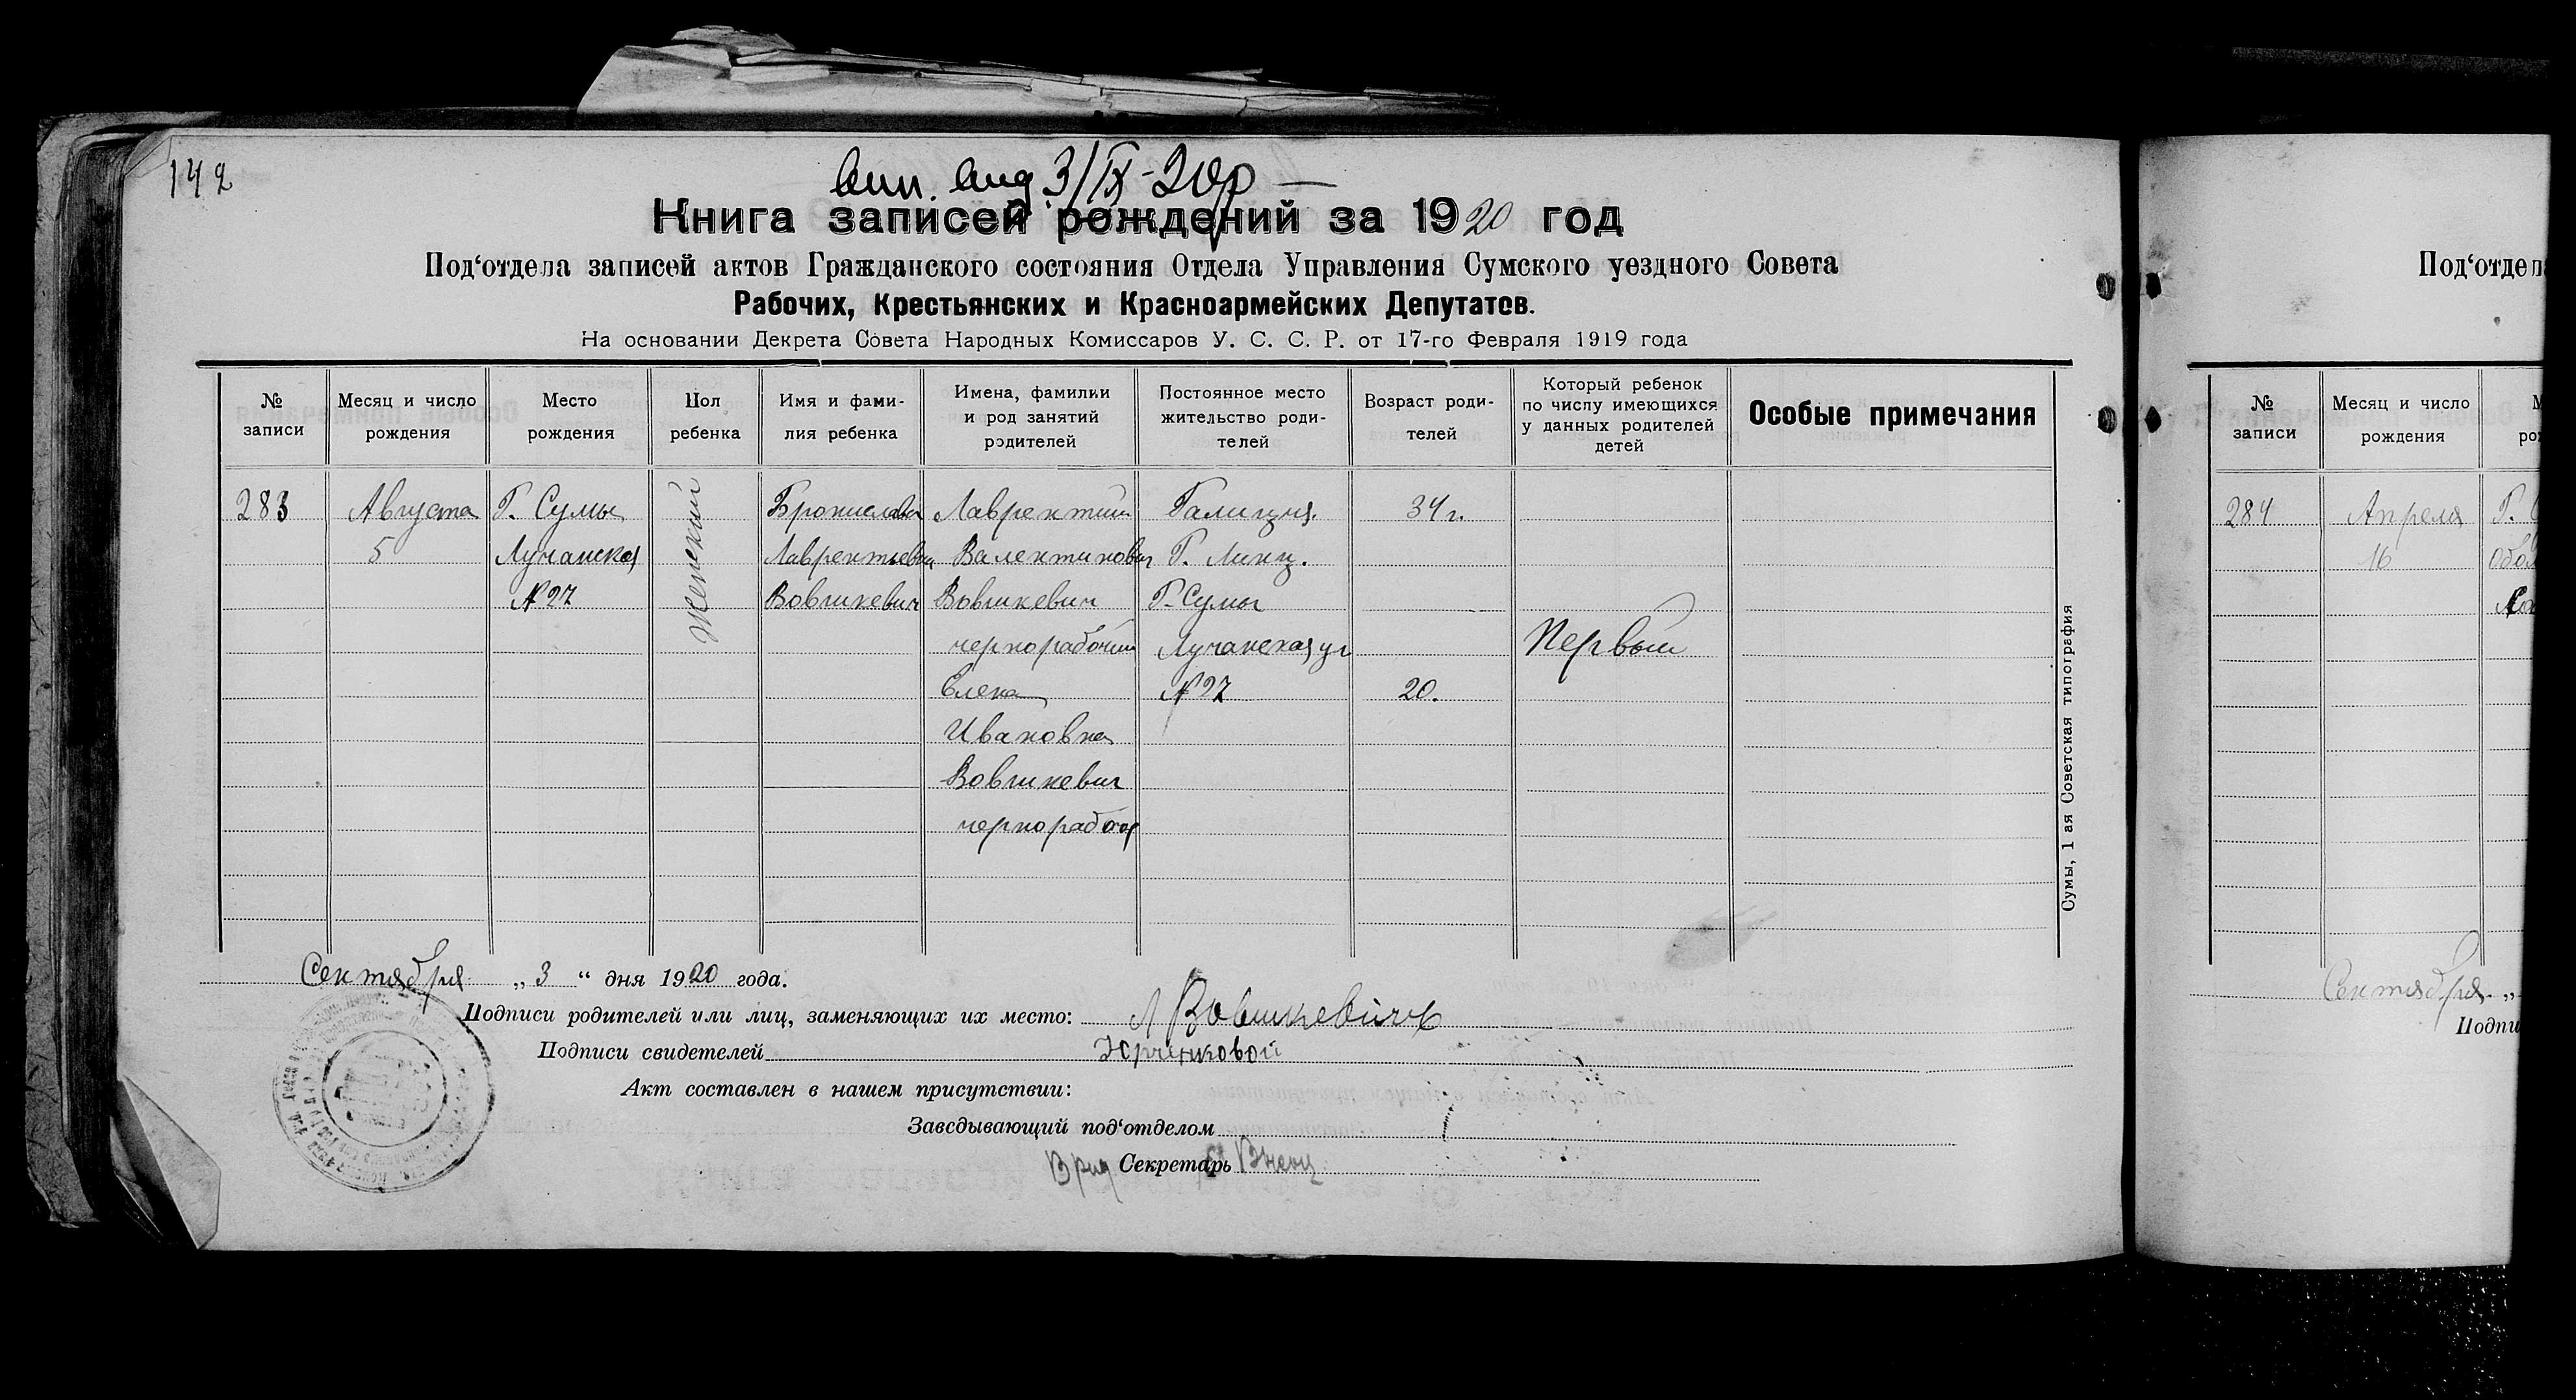 142
3/IX-20р
Книга записей рождений за 1920 год
Под‘отдела записей актов Гражданского состояния Отдела Управления Сумского уездного Совета
Рабочих, Крестьянских и Красноармейских Депутатов.
На основании Декрета Совета Народных Комиссаров У. С. С. Р. от 17-го Февраля 1919 года
№ записи
Месяц и число рождения
Место рождения
Пол ребенка
Имя и фами-
лия ребенка
Имена, фамилии
и род занятий
родителей
Постоянное место
жительство роди-
телей
Возраст роди-
телей
Который ребенок
по числу имеющихся
у данных родителей
детей
Особые примечания
283
Августа
5
Г. Сумы
Лучанская
№ 27
Женский
Бронислава
Лаврентьевна
Вовшкевич
Лаврентий
Валентинович
Вовшкевич
чернорабочий
Елена
Ивановна
Вовшкевич
чернорабоч
Галиция.
Г. Линц.
Г. Сумы
Лучанская ул
№ 27
34 г.
20.
Первый
Сентября „ 3 “ дня 1920 года.
Подписи родителей или лиц, заменяющих их место: Л Вовшкевичъ
Подписи свидетелей
Акт составлен в нашем присутствии:
Заведывающий под‘отделом
Врид Секретарь
Сумы, 1 ая Советская типография
Под‘отдел
№ записи
Месяц и число рождения
284
Апреля
16
Г.
Сентября „
Подпи